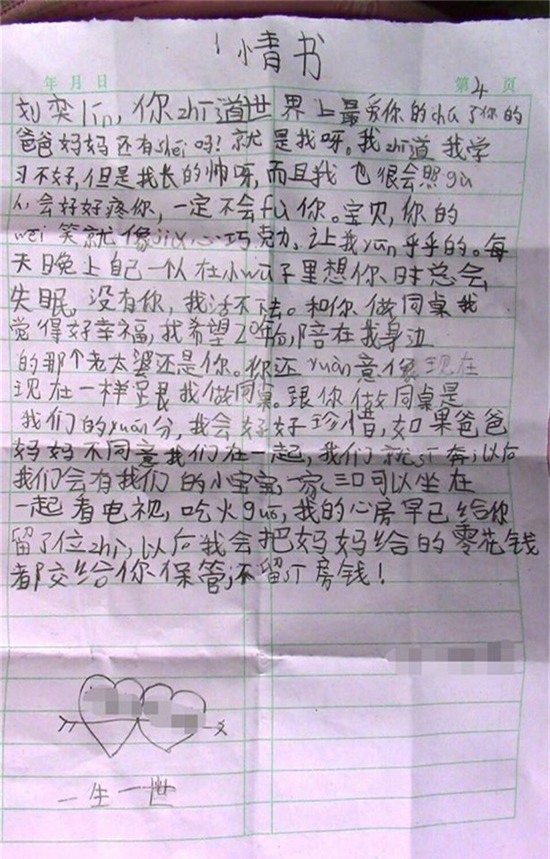 情书
年 月 日 第 4 页
刘奕lin,你zhī道世界上最爱你的chú了你的
爸爸妈妈还有shei吗?就是我呀。我zhī道我学
习不好,但是我长的帅呀,而且我也很会照gù
人会好好疼你,一定不会fù你。宝贝,你的
wēi笑就像jiā心巧克力,让我yūn乎乎的。每
天晚上自己一个人在小wū子里想你时总会
失眠,没有你,我活不下去。和你做同桌我
觉得好幸福,我希望20年后,陪在我身边
的那个老太婆还是你。你还yuàn意像现在
现在一样跟我做同桌。跟你做同桌是
我们的yuán分,我会好好珍惜,如果爸爸
妈妈不同意我们在一起,我们就sī奔,以后
我们会有我们的小宝宝,一家三口可以坐在
一起看电视,吃火guō,我的心房早已给你
留了位zhi,以后我会把妈妈给的零花钱
都交给你保管,不留sī房钱!
一生一世